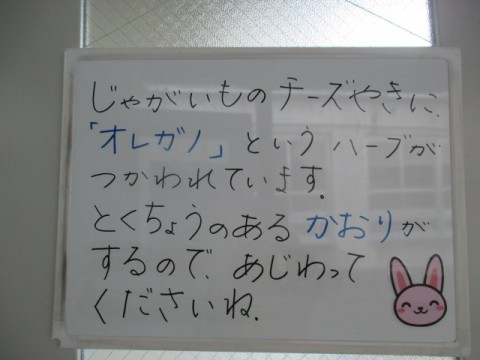 じゃがいものチーズやきに、
「オレガノ」というハーブが
つかわれています。
とくちょうのあるかおりが
するので、あじわって
くださいね。